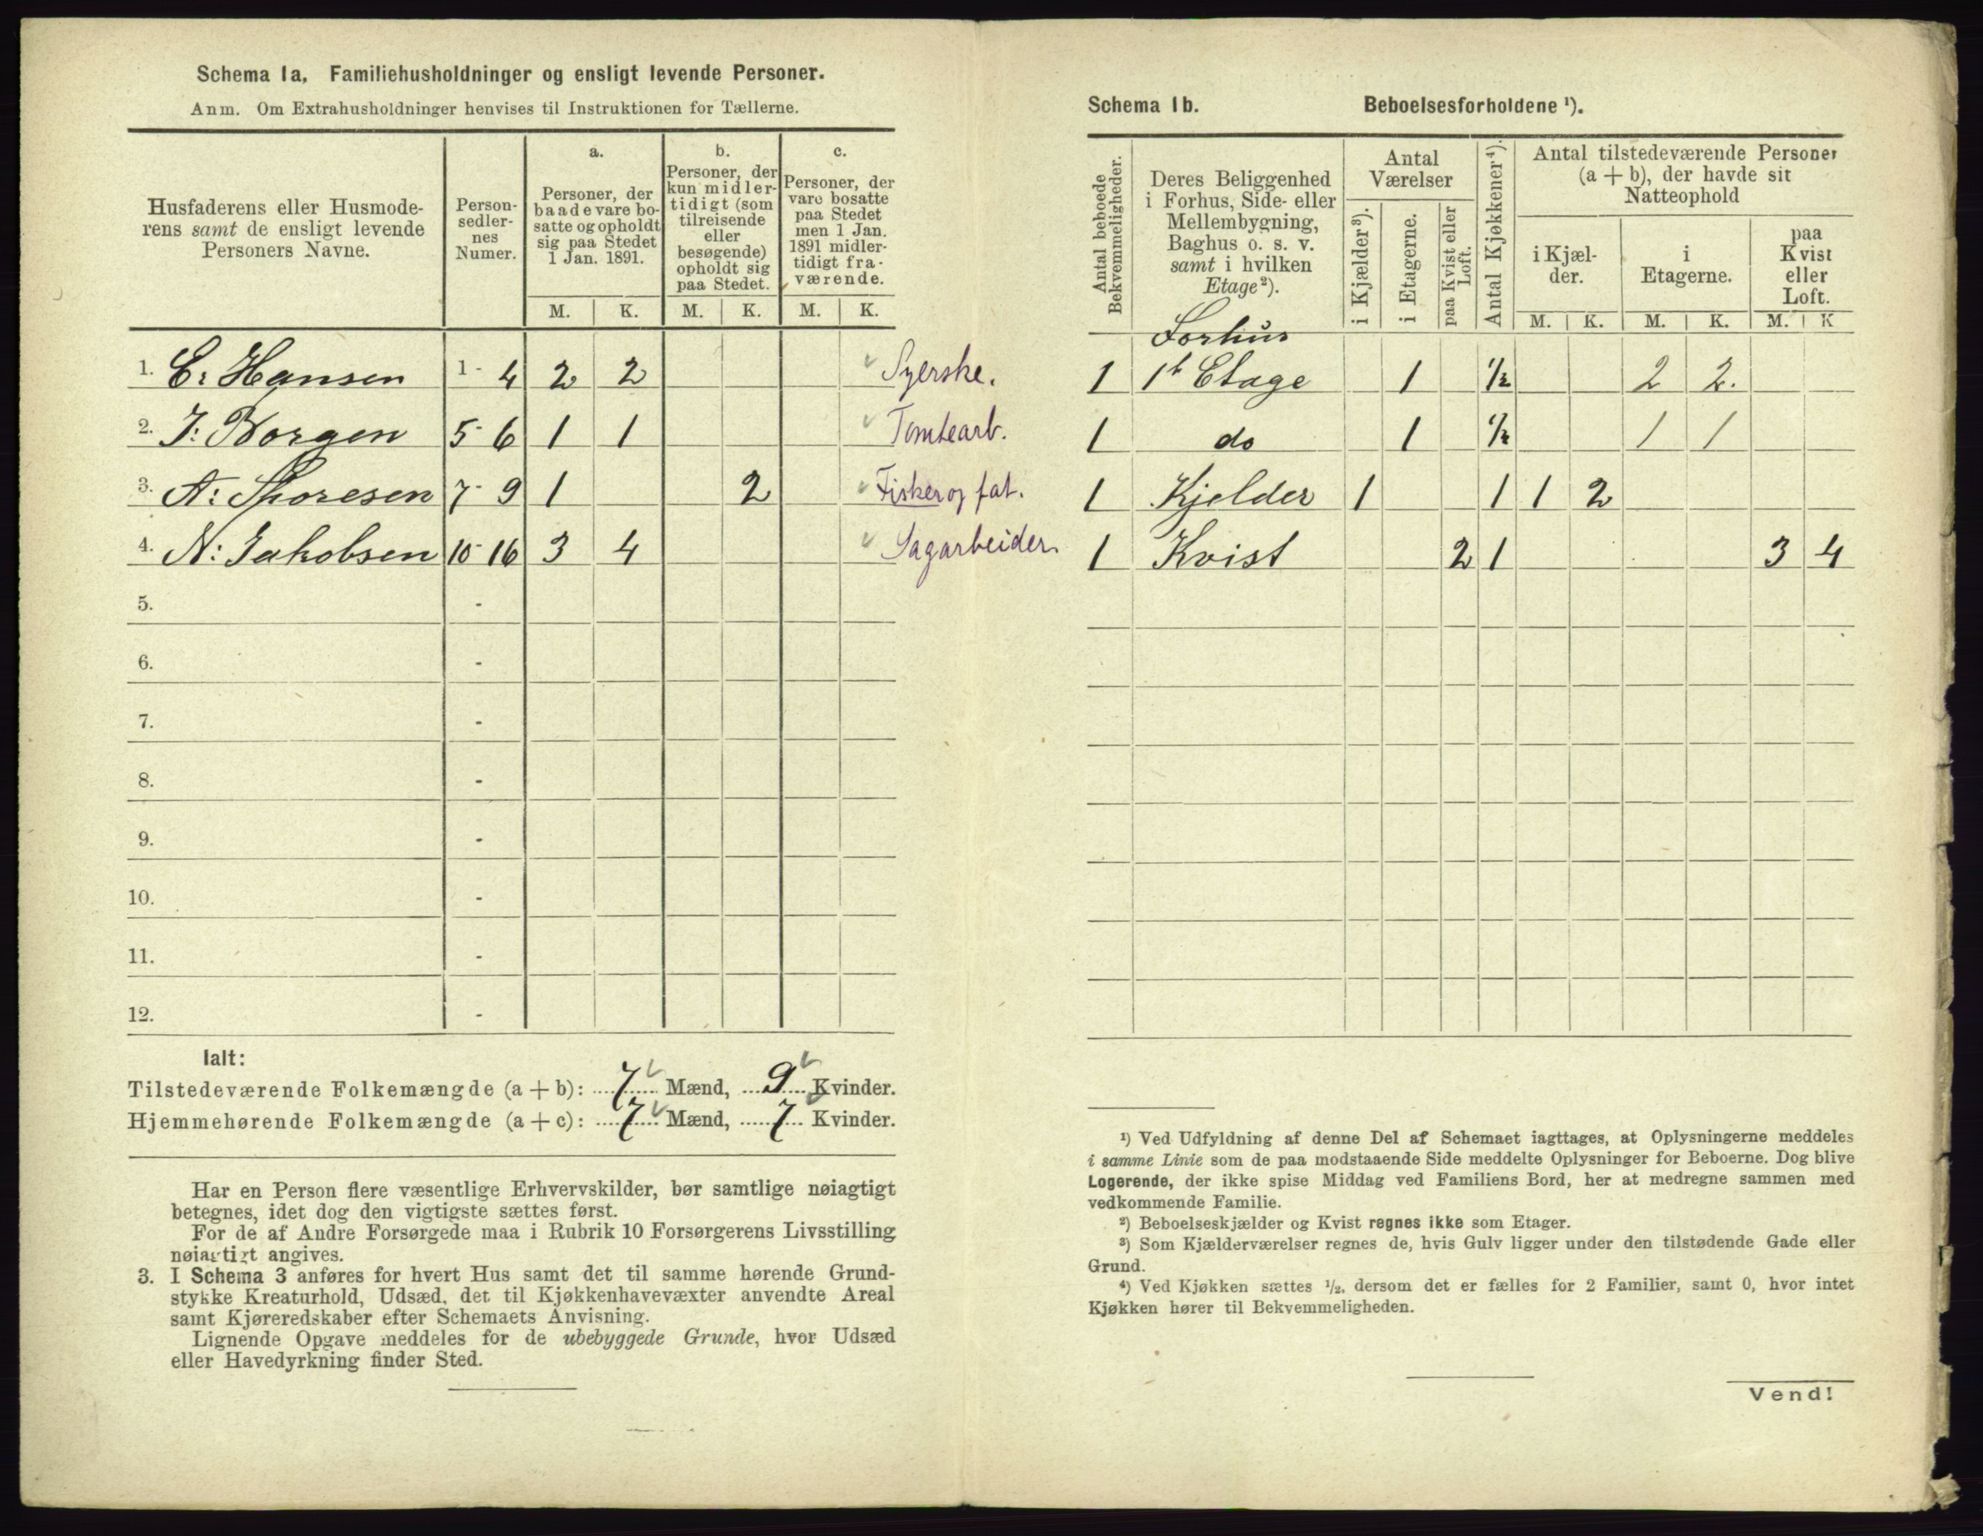 Schema 1a. Familiehusholdninger og ensligt levende Personer.
Anm. Om Extrahusholdninger henvises til Instruktionen for Tællerne.
Husfaderens eller Husmoderens samt de ensligt levende Personers Navne.
Personsedlernes Numer.
a. Personer, der baade vare bosatte og opholdt sig paa Stedet 1 Jan. 1891.
b. Personer, der kun midlertidigt (som tilreisende eller besøgende) opholdt sig paa Stedet.
c. Personer, der vare bosatte paa Stedet men 1 Jan. 1891 midlertidigt fraværende.
M. K. M. K. M. K.
1. C: Hansen 1 - 4 2 2 Syerske.
2. J: Borgen 5 - 6 1 1 Tomtearb.
3. A: Thoresen 7 - 9 1 2 Fisker og fat.
4. N: Jakobsen 10 - 16 3 4 Sagarbeider.
5. -
6. -
7. -
8. -
9. -
10. -
11. -
12. -
Ialt:
Tilstedeværende Folkemængde (a + b): 7 Mænd, 9 Kvinder.
Hjemmehørende Folkemængde (a + c): 7 Mænd, 7 Kvinder.
Har en Person flere væsentlige Erhvervskilder, bør samtlige nøiagtigt
betegnes, idet dog den vigtigste sættes først.
For de af Andre Forsørgede maa i Rubrik 10 Forsørgerens Livsstilling
nøiagtigt angives.
3. I Schema 3 anføres for hvert Hus samt det til samme hørende Grund-
stykke Kreaturhold, Udsæd, det til Kjøkkenhavevæxter anvendte Areal
samt Kjøreredskaber efter Schemaets Anvisning.
Lignende Opgave meddeles for de ubebyggede Grunde, hvor Udsæd
eller Havedyrkning finder Sted.
Schema 1b. Beboelsesforholdene ¹).
Antal beboede Bekvemmeligheder.
Deres Beliggenhed i Forhus, Side- eller Mellembygning, Baghus o. s. v. samt i hvilken Etage²).
Antal Værelser
i Kjælder³). i Etagerne. paa Kvist eller Loft.
Antal Kjøkkener⁴).
Antal tilstedeværende Personer (a + b), der havde sit Natteophold
i Kjælder. i Etagerne. paa Kvist eller Loft.
M. K. M. K. M. K
Forhus
1 1ste Etage 1 1/2 2 2.
1 do 1 1/2 1 1
1 Kjelder 1 1 1 2
1 Kvist 2 1 3 4
¹) Ved Udfyldning af denne Del af Schemaet iagttages, at Oplysningerne meddeles
i samme Linie som de paa modstaaende Side meddelte Oplysninger for Beboerne. Dog blive
Logerende, der ikke spise Middag ved Familiens Bord, her at medregne sammen med
vedkommende Familie.
²) Beboelseskjælder og Kvist regnes ikke som Etager.
³) Som Kjælderværelser regnes de, hvis Gulv ligger under den tilstødende Gade eller
Grund.
⁴) Ved Kjøkken sættes ½, dersom det er fælles for 2 Familier, samt 0, hvor intet
Kjøkken hører til Bekvemmeligheden.
Vend!